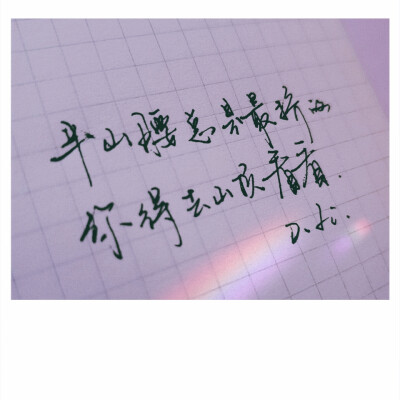 半山腰总是最挤的
你得去山顶看看.